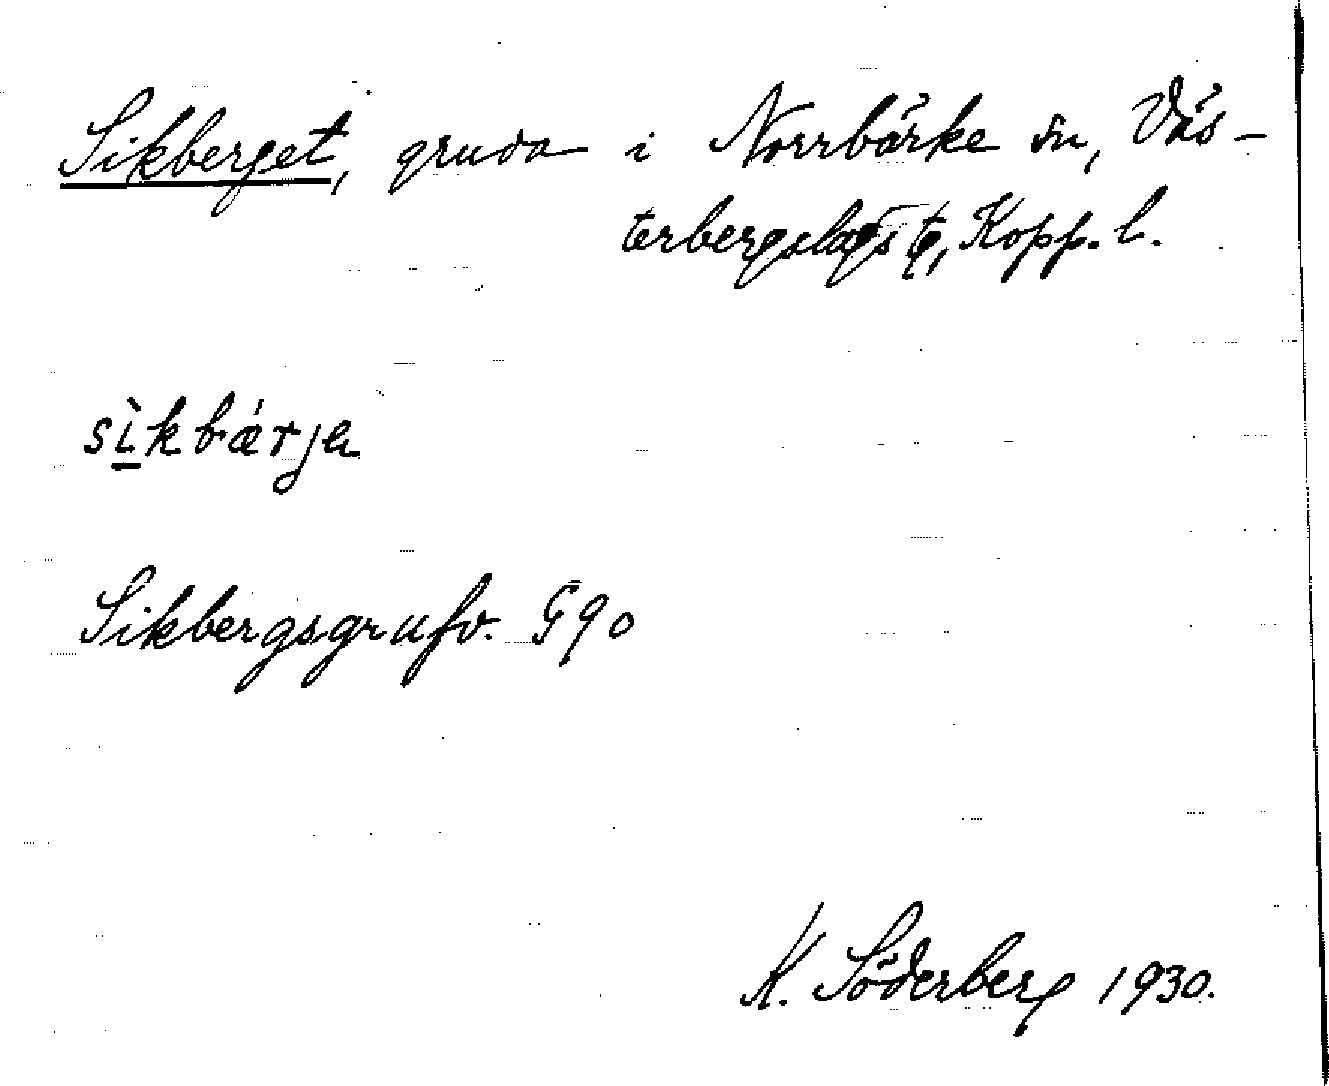 Sikberget, gruva i Norrbärke sn, Väs-
terbergslags tg, Kopp. l.
sìkbárja
Sikbergsgrufv. G90
K. Söderberg 1930.